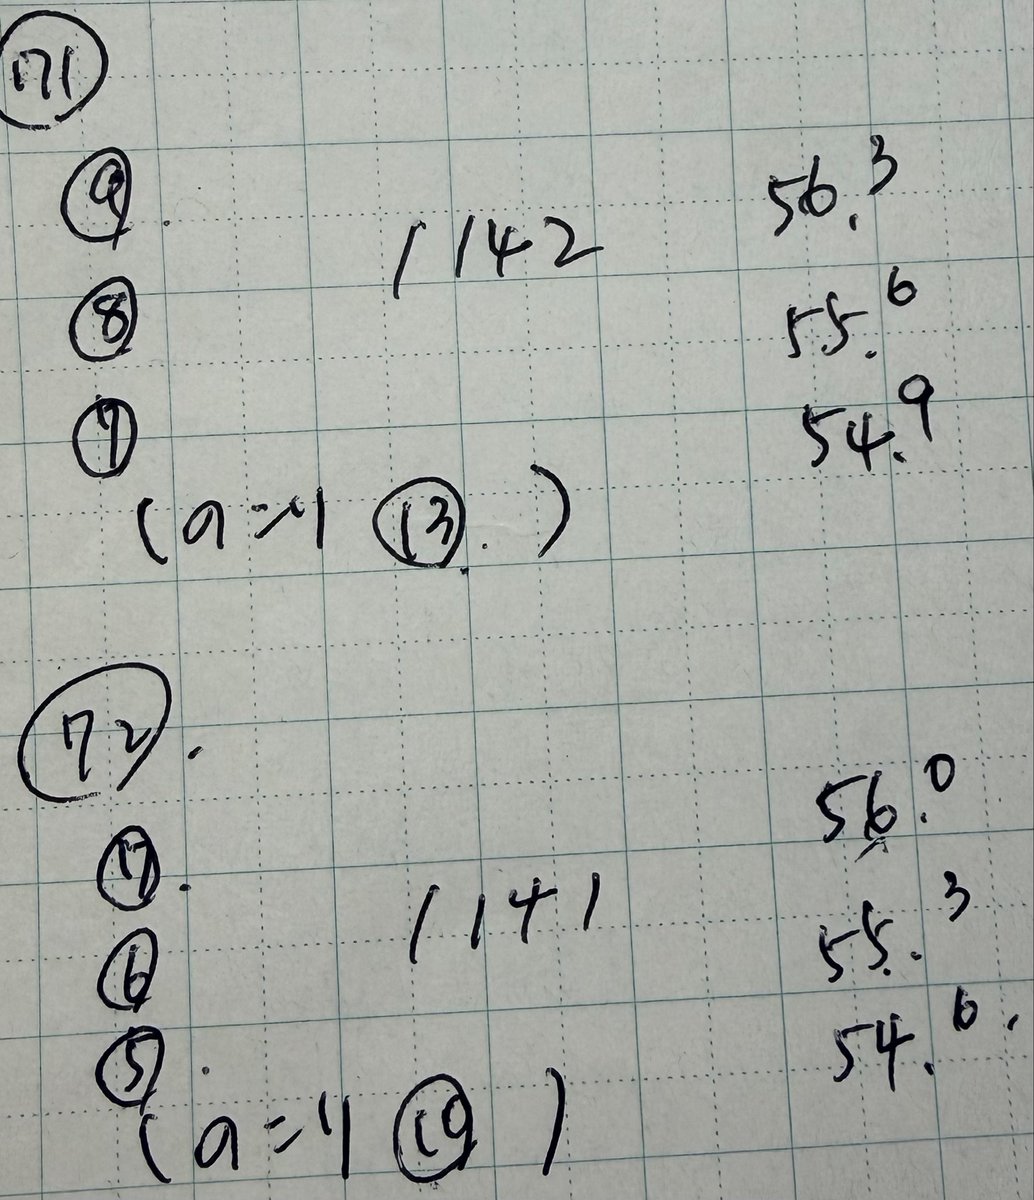 171
9. 1142 56.3
8 55.6
7 54.9
(a=4 13.)
72.
7. 1141 56.0
6 55.3
5. 54.6.
(a=4 10)